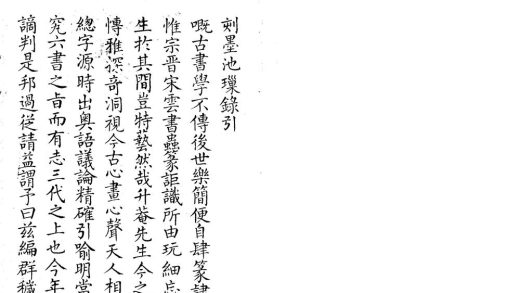 刻墨池璅錄引
嘅古書學不傳後世樂簡便自肆篆隸
惟宗晋宋雲書蟲篆詎識所由玩細忘
生於其間豈特藝然哉升菴先生今之
慱雅深奇洞視今古心畫心聲天人相
總字源時出奥語議論精確引喻明當
究六書之㫖而有志三代之上也今年
謫判是邦過從請益謂予曰兹編群穢